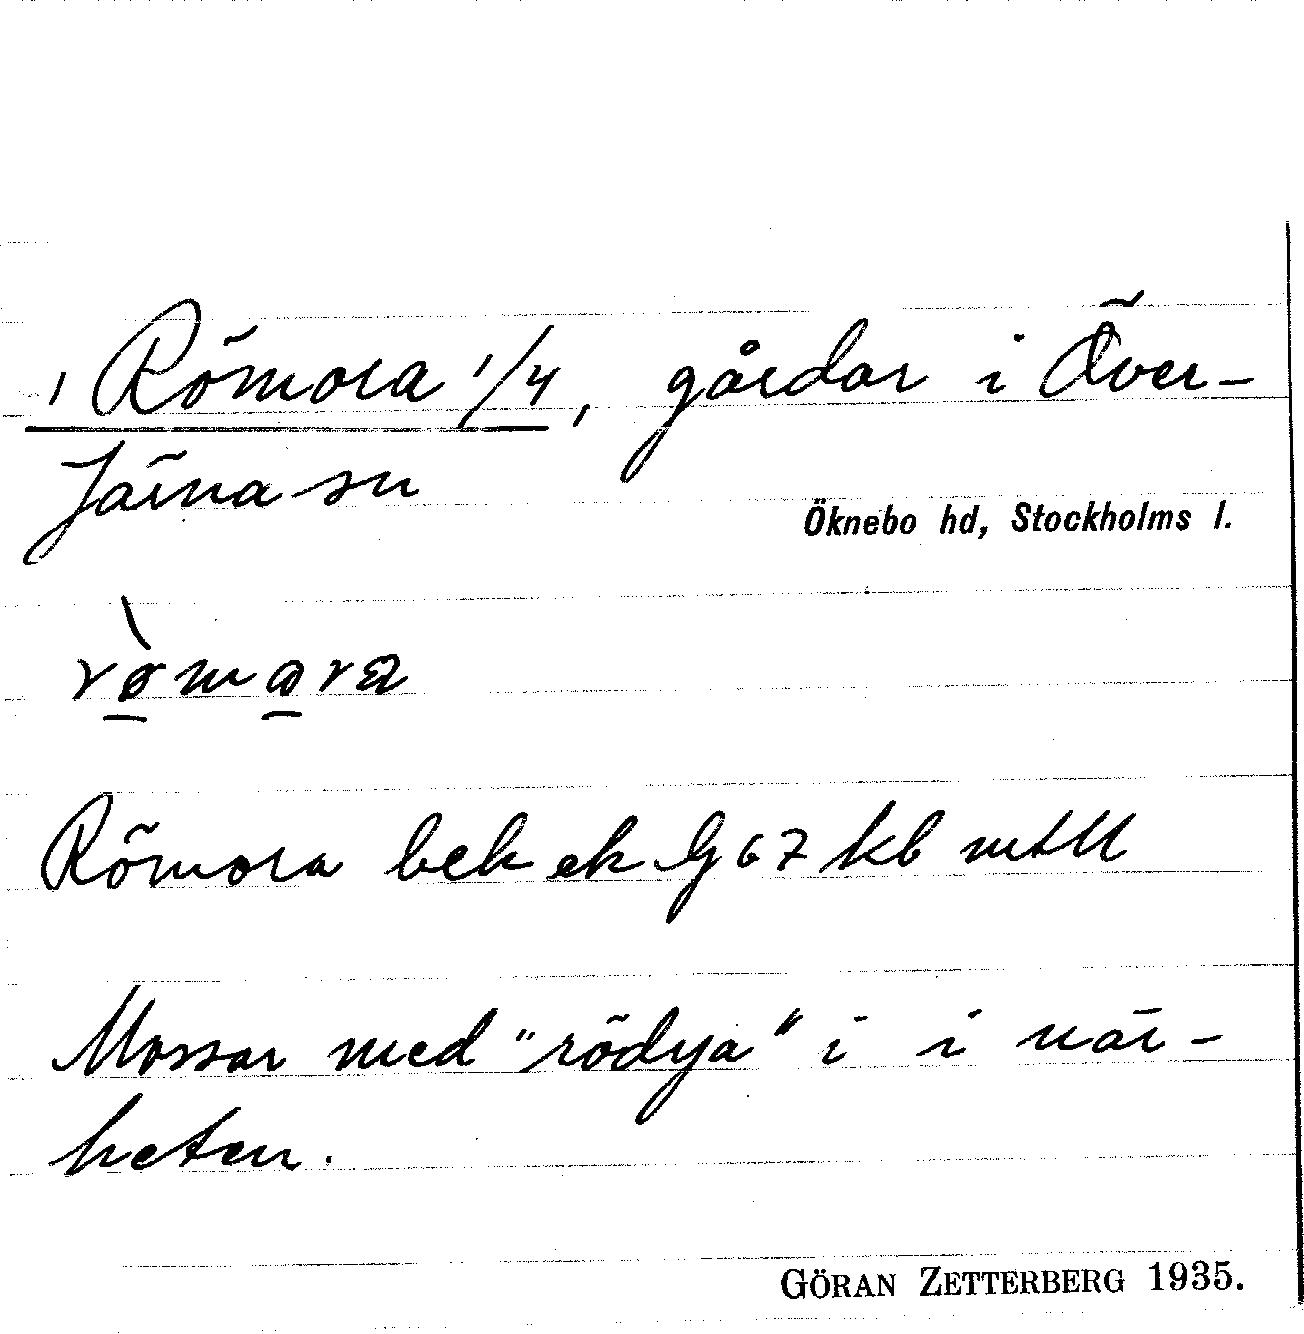 1 Römora 1/4, gårdar i Över-
Järna sn
Öknebo hd, Stockholms l.
Römora bek ek G 67 kb mtll
Mossar med "rödya" i i när-
heten.
GÖRAN ZETTERBERG 1935.